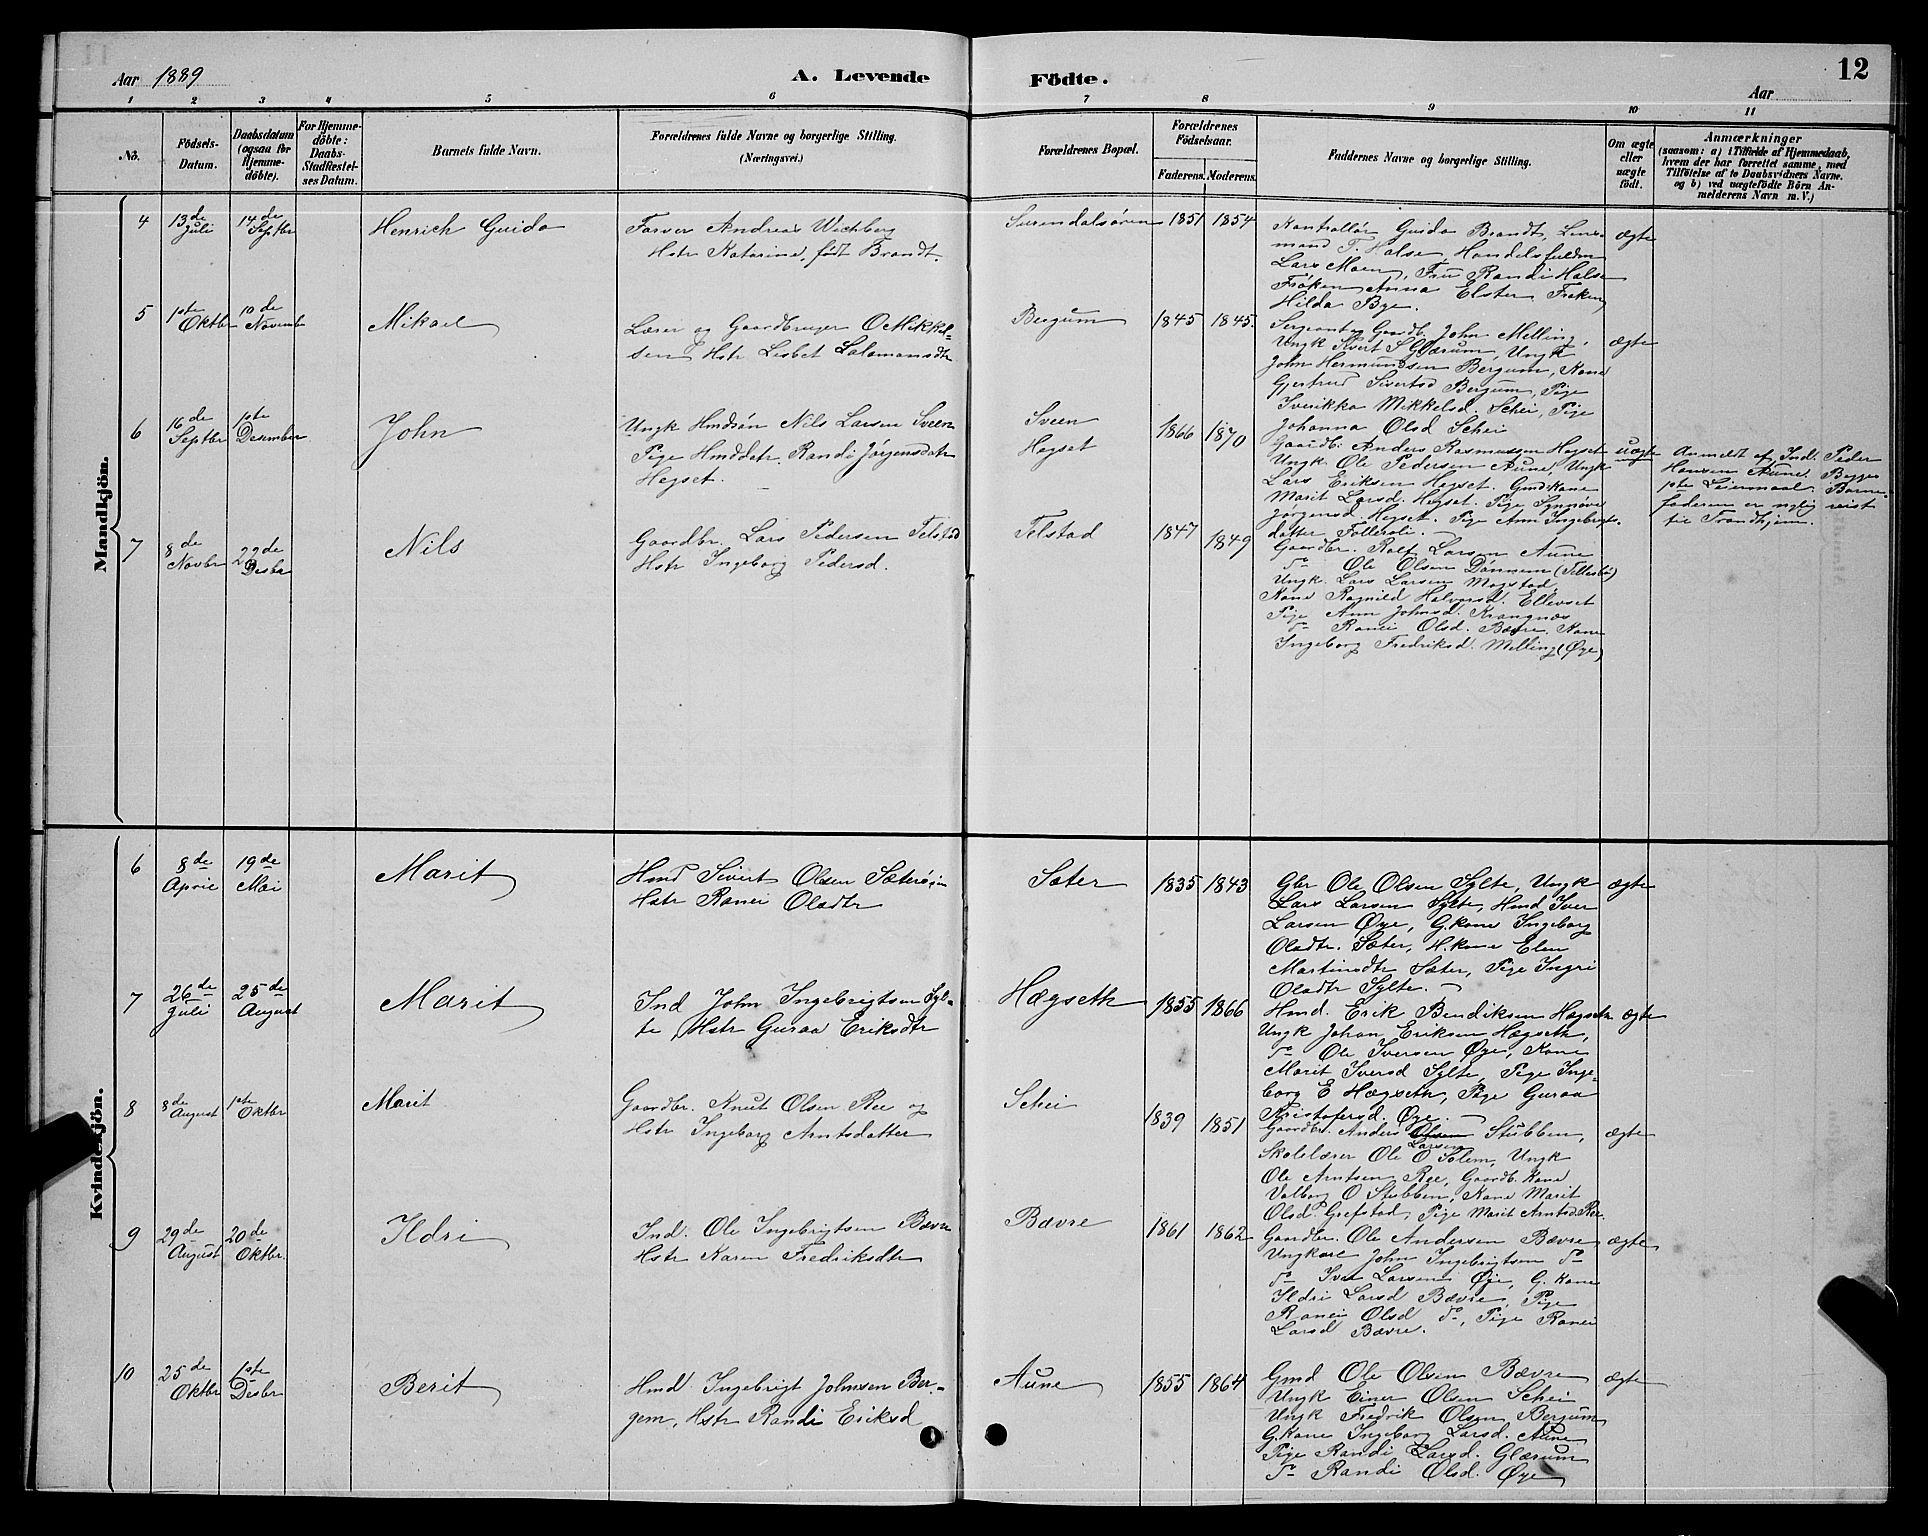 Aar 1889
A. Levende
Födte.
12
Aar
1 2 3 4 5 6 7 8 9 10 11
No.
Födsels-
Datum.
Daabsdatum
(ogsaa for
Hjemme-
döbte).
For Hjemme-
döbte:
Daabs-
Stadfæstel-
ses Datum.
Barnets fulde Navn.
Forældrenes fulde Navne og borgerlige Stilling.
(Næringsvei.)
Forældrenes Bopæl.
Forældrenes
Födselsaar.
Faderens. Moderens.
Faddernes Navne og borgerlige Stilling.
Om ægte
eller
uægte
födt.
Anmærkninger
(saasom: a) i Tilfælde af Hjemmedaab,
hvem der har forrettet samme, med
Tilföielse af to Daabsvidners Navne.
og b) ved uægtefödte Börn An-
melderens Navn m. V.)
Mandkjön.
4
13de
Juli
14de
Septbr
Henrich Guido
Farver Andreas Wichberg
Hstr Katarine, født Brandt.
Surendalsøren
1851 1854
Kontrollör Guido Brandt, Lens-
mand T. Halse, Handelsfuldm
Lars Moen, Fru Randi Halse
Frøken Anna Elster Frøken
Hilda Bye.
ægte
5
1ste
Oktbr
10de
Novemb
Mikael
Lærer og Gaardbruger O Mikkel-
sen Hstr Lisbet Salamonsdtr
Bergum
1845 1845.
Sergeant og Gaardb. John Melling,
Ungk Sivert S Glærum, Ungk
John Hermundsen Bergum, Kone
Gjertrud Sivertsd Bergum, Pige
Sverikka Mikkelsd. Schei, Pige
Johanna Olsd Schei
ægte
6
16de
Septbr
1ste
Desember
John
Ungk Hmdsön Nils Larsen Sveen
Pige Hmddtr. Randi Jørgensdatr
Hegset.
Sveen
Hegset
1866 1870
Gaardb: Anders Rasmussen Hegset
Ungk. Ole Pedersen Aune, Ungk
Lars Eriksen Hegset. Gmdkone
Marit Larsd. Hegset. Pige Synnøve
Jørgensd. Hegset. Pige Ann Ingebrigts-
datter Tollefoli.
uægte
Anmeldt af Ind. Peder
Hansen Aune. Begges
1ste Leiermaal. Barne-
faderen er nylig reist
til Trondhjem.
7
8de
Novbr
22de
Desbr
Nils
Gaardbr. Lars Pedersen Telstad
Hstr Ingeborg Pedersd.
Telstad
1847 1849
Gaardbr. Rolf Larsen Aune
Do Ole Olsen Dønnem (Tellesbø)
Ungk. Lars Larsen Mogstad
Kone Ragnild Halvorsd. Ellevset
Pige Ann Johnsd. Krangnæs
Do Ranei Olsd. Bævre. Kone
Ingeborg Fredriksd. Melling (Øye)
Kvindekjön.
6
8de
April
19de
Mai
Marit
Hmd Sivert Olsen Sæterøien
Hstr Ranei Olsdtr
Sæter
1835 1843
Gbr Ole Olsen Sylte, Ungk
Lars Larsen Sylte, Hmd Iver
Larsen Øye, G.kone Ingeborg
Olsdtr. Sæter, H.kone Elen
Martinsdtr Sæter, Pige Ingri
Olsdtr Sylte.
ægte
7
26de
Juli
25de
August
Marit
Ind John Ingebrigtsen Syl-
te, Hstr Guraa Eriksdtr
Hægseth
1855 1866
Hmd. Erik Bendiksen Hægseth
Ungk Johan Eriksen Hægseth,
Do Ole Iversen Øye, Kone
Marit Iversd Sylte, Pige Inge-
borg E Hægseth, Pige Guraa
Kristofersd. Øye.
ægte
8
8de
August
1ste
Oktbr
Marit
Gaardbr. Knut Olsen Ree og
Hstr Ingeborg Arntsdatter
Schei
1839 1851
Gaardbr. Anders Olsen Stubben,
Larsen
Skolelærer Ole O Solem, Ungk
Ole Arntsen Ree, Gaardb. Kone
Valborg O Stubben, Kone Marit
Olsd Grefstad, Pige Marit Arntsd. Ree.
ægte
9
29de
August
20de
Oktbr.
Ildri
Ind. Ole Ingebrigtsen Bævre
Hstr Karen Fredriksdtr
Bævre
1861 1862
Gaardbr. Ole Andersen Bævre
Ungkarl John Ingebrigtsen Do
Do Iver Larsen Øye, G. Kone
Ildri Larsd Bævre, Pige
Ranei Olsd Do, Pige Ranei
Larsd Bævre.
ægte
10
25de
Oktbr
1ste
Desbr
Berit
Hmd Ingebrigt Johnsen Ber-
gem, Hstr Randi Eriksd
Aune
1855 1864
Gmd Ole Olsen Bævre
Ungk Einer Olsen Schei
Ungk Fredrik Olsen Bergum
G.Kone Ingeborg Larsd. Aune
Pige Randi Larsd. Glærum
Do Randi Olsd. Øye
ægte